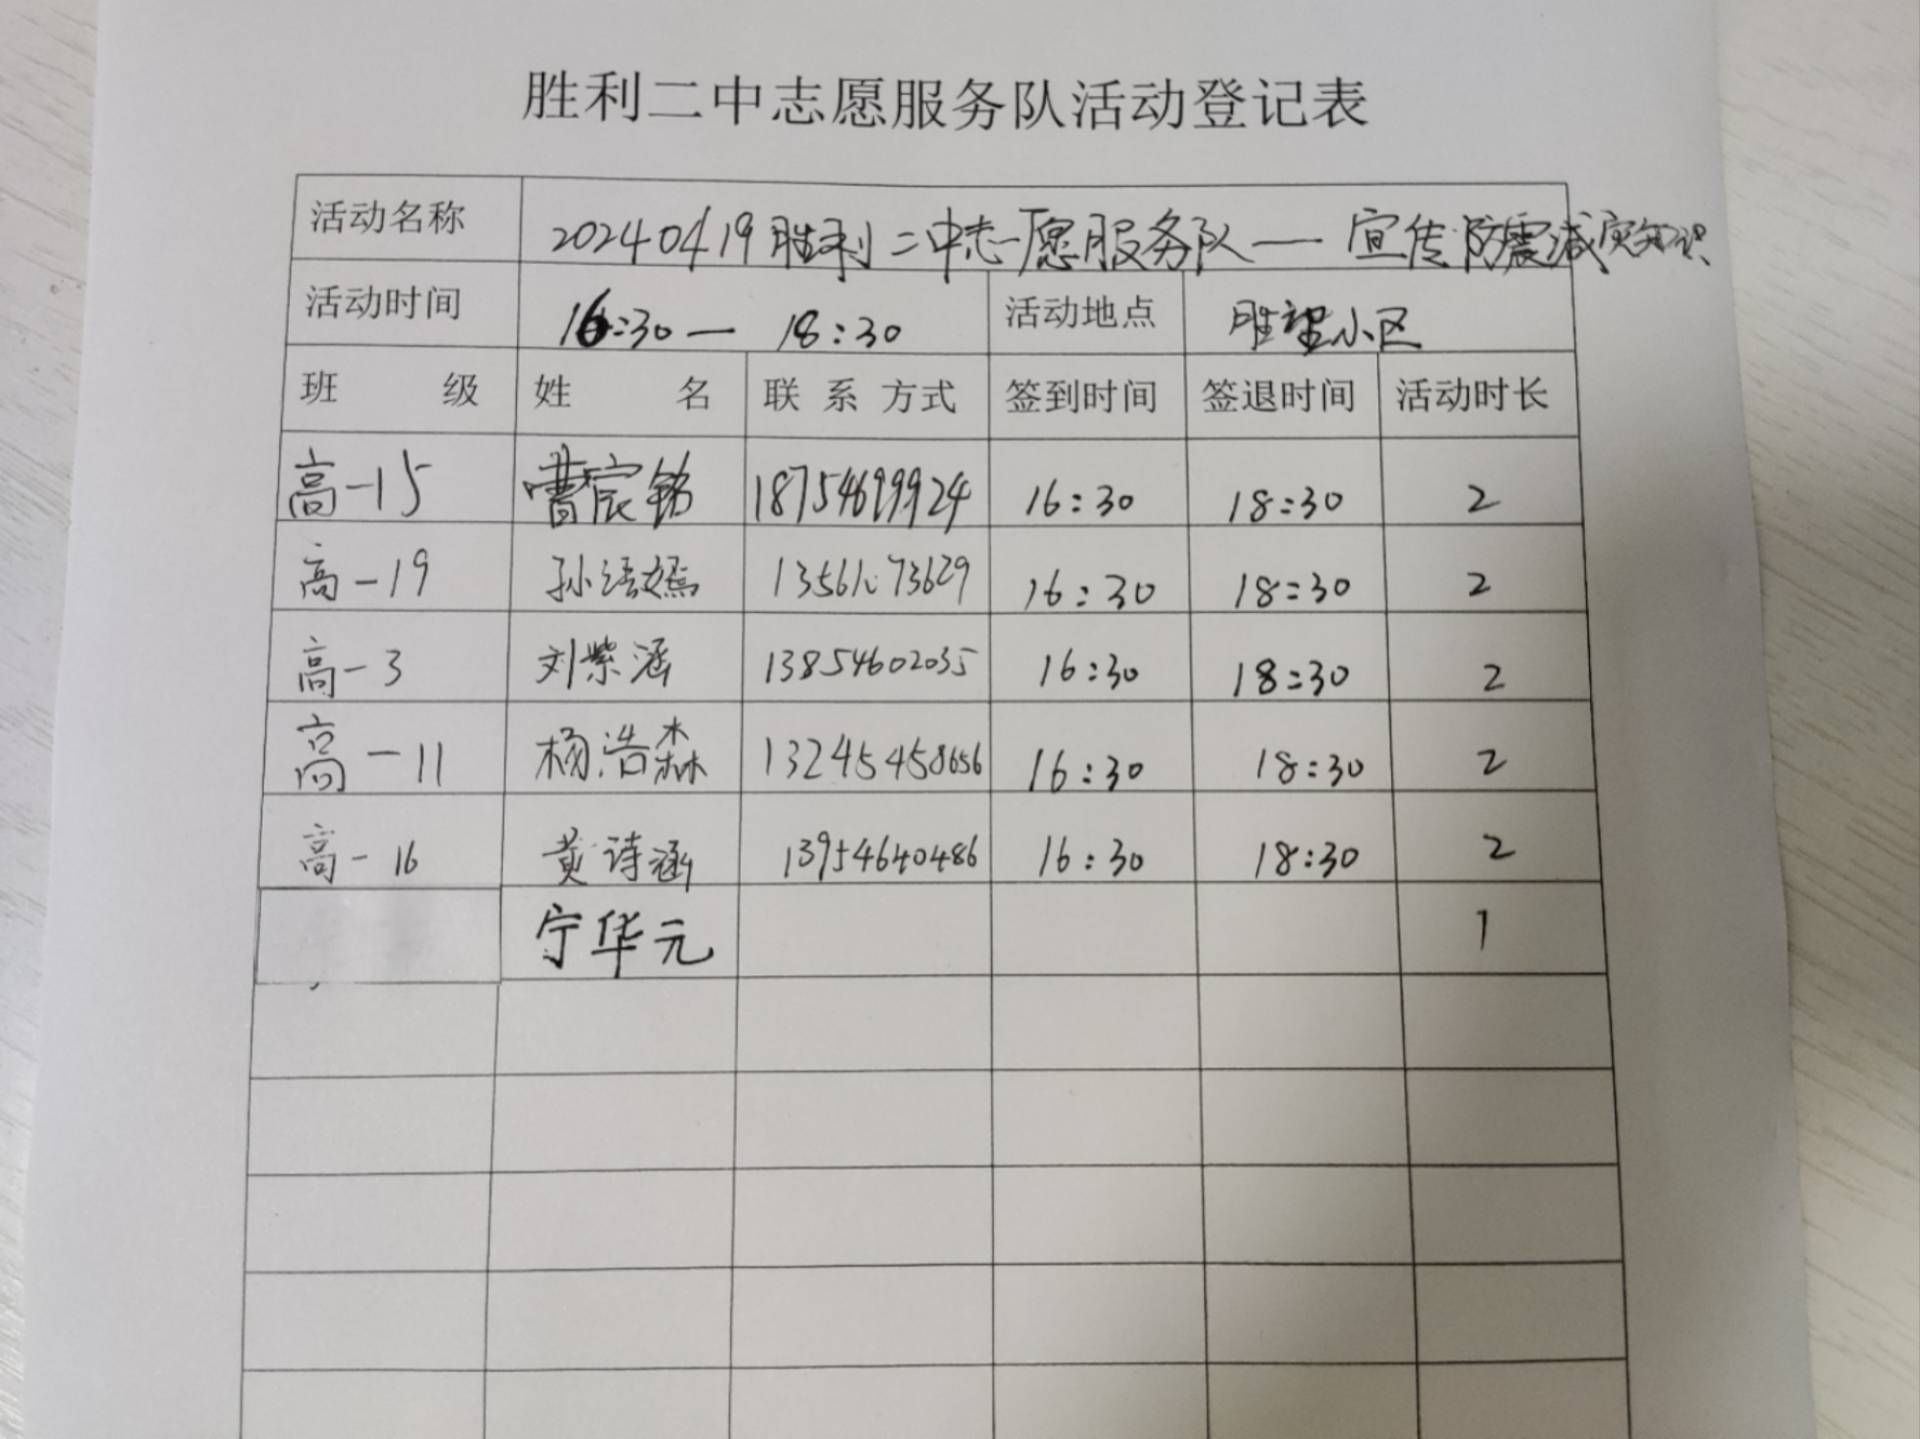 胜利二中志愿服务队活动登记表
活动名称 20240419胜利二中志愿服务队——宣传防震减灾知识
活动时间 16:30—18:30 活动地点 胜望小区
班级 姓名 联系方式 签到时间 签退时间 活动时长
高一15 曹宸铭 18754699924 16:30 18:30 2
高一19 孙 16:30 18:30 2
高一3 刘紫涵 13854602035 16:30 18:30 2
高一11 杨浩森 13245458656 16:30 18:30 2
高一16 黄诗涵 13954640486 16:30 18:30 2
宁华元 1